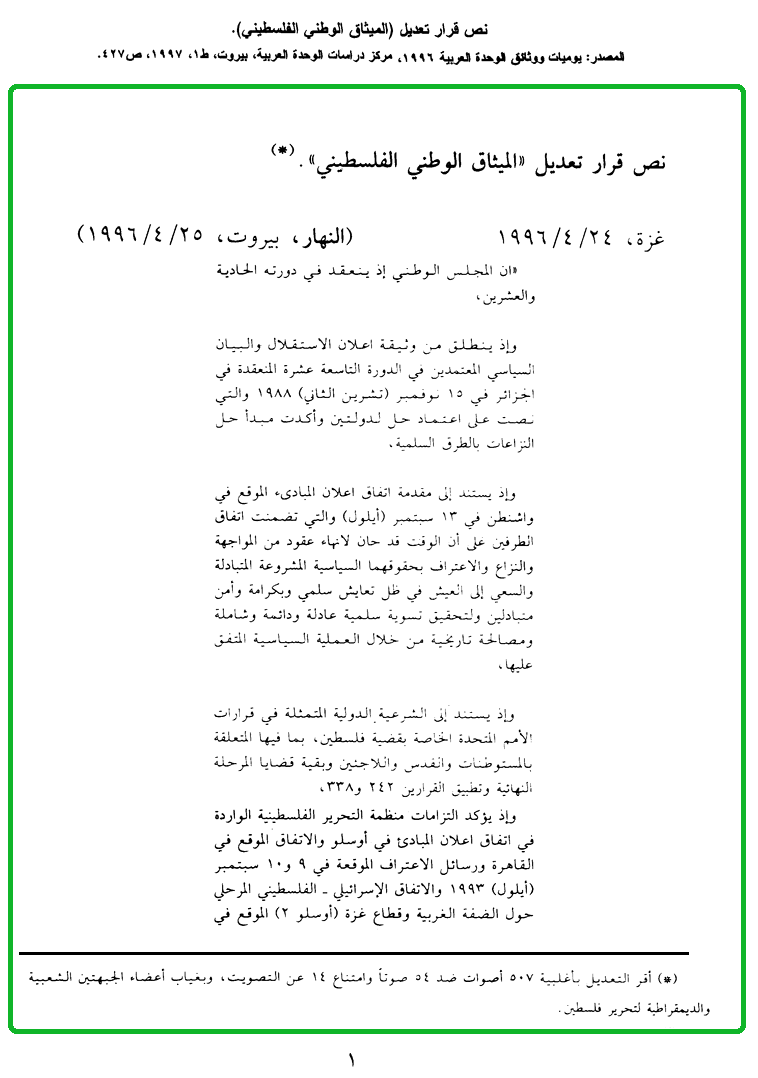 نص قرار تعديل (الميثاق الوطني الفلسطيني).
المصدر: يوميات ووثائق الوحدة العربية ١٩٩٦، مركز دراسات الوحدة العربية، بيروت، ط١، ١٩٩٧، ص٤٢٧.
نص قرار تعديل «الميثاق الوطني الفلسطيني». (*)
غزة، ٢٤/٤/١٩٩٦ (النهار، بيروت، ٢٥/٤/١٩٩٦)
«ان المجلس الوطني إذ ينعقد في دورته الحادية
والعشرين،
وإذ ينطلق من وثيقة اعلان الاستقلال والبيان
السياسي المعتمدين في الدورة التاسعة عشرة المنعقدة في
الجزائر في ١٥ نوفمبر (تشرين الثاني) ١٩٨٨ والتي
نصت على اعتماد حل لدولتين وأكدت مبدأ حل
النزاعات بالطرق السلمية،
وإذ يستند إلى مقدمة اتفاق اعلان المبادىء الموقع في
واشنطن في ١٣ سبتمبر (أيلول) والتي تضمنت اتفاق
الطرفين على أن الوقت قد حان لانهاء عقود من المواجهة
والنزاع والاعتراف بحقوقهما السياسية المشروعة المتبادلة
والسعي إلى العيش في ظل تعايش سلمي وبكرامة وأمن
متبادلين ولتحقيق تسوية سلمية عادلة ودائمة وشاملة
ومصالحة تاريخية من خلال العملية السياسية المتفق
عليها،
وإذ يستند إلى الشرعية الدولية المتمثلة في قرارات
الأمم المتحدة الخاصة بقضية فلسطين، بما فيها المتعلقة
بالمستوطنات والقدس واللاجئين وبقية قضايا المرحلة
النهائية وتطبيق القرارين ٢٤٢ و٣٣٨،
وإذ يؤكد التزامات منظمة التحرير الفلسطينية الواردة
في اتفاق اعلان المبادئ في أوسلو والاتفاق الموقع في
القاهرة ورسائل الاعتراف الموقعة في ٩ و١٠ سبتمبر
(أيلول) ١٩٩٣ والاتفاق الإسرائيلي ـ الفلسطيني المرحلي
حول الضفة الغربية وقطاع غزة (أوسلو ٢) الموقع في
(*) أقر التعديل بأغلبية ٥٠٧ أصوات ضد ٥٤ صوتاً وامتناع ١٤ عن التصويت، وبغياب أعضاء الجبهتين الشعبية
والديمقراطية لتحرير فلسطين.
١